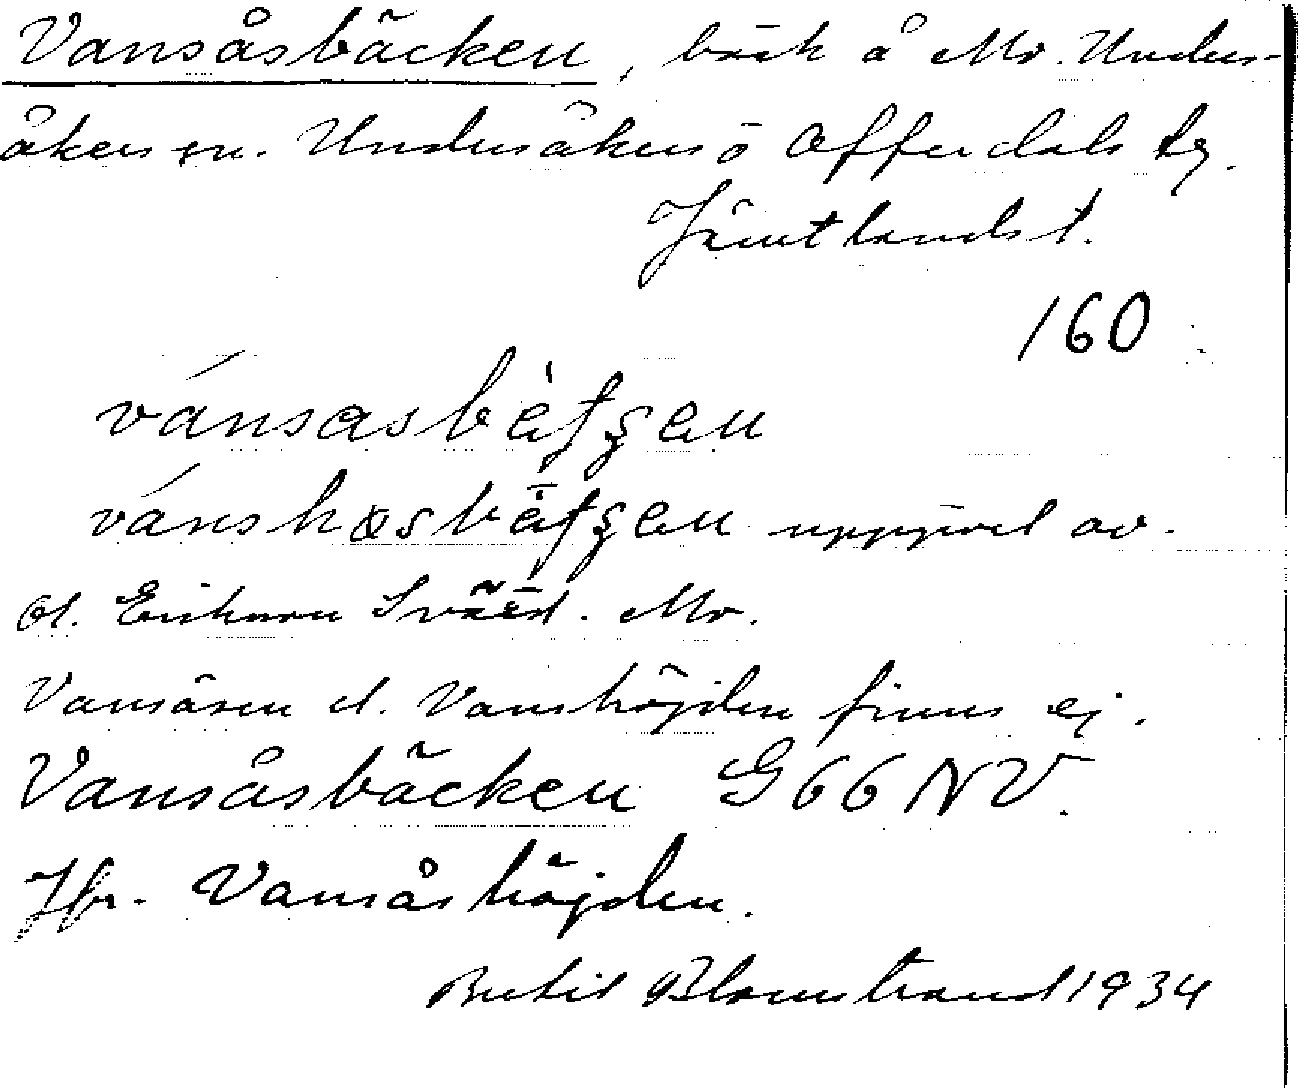 Vansåsbäcken, bäck å Mo. Unders-
åkers sn. Undersåkers o Offerdals tg.
Jämtlands l.
160
vánsasbètʃen
vánshøsbètʃen uppgivet av
Ol. Erikson Svärd. Mo.
Vansåsen el. Vanshöjden finns ej.
Vansåsbäcken G66NV.
Jfr. Vansåshöjden.
Bertil Blomstrand 1934